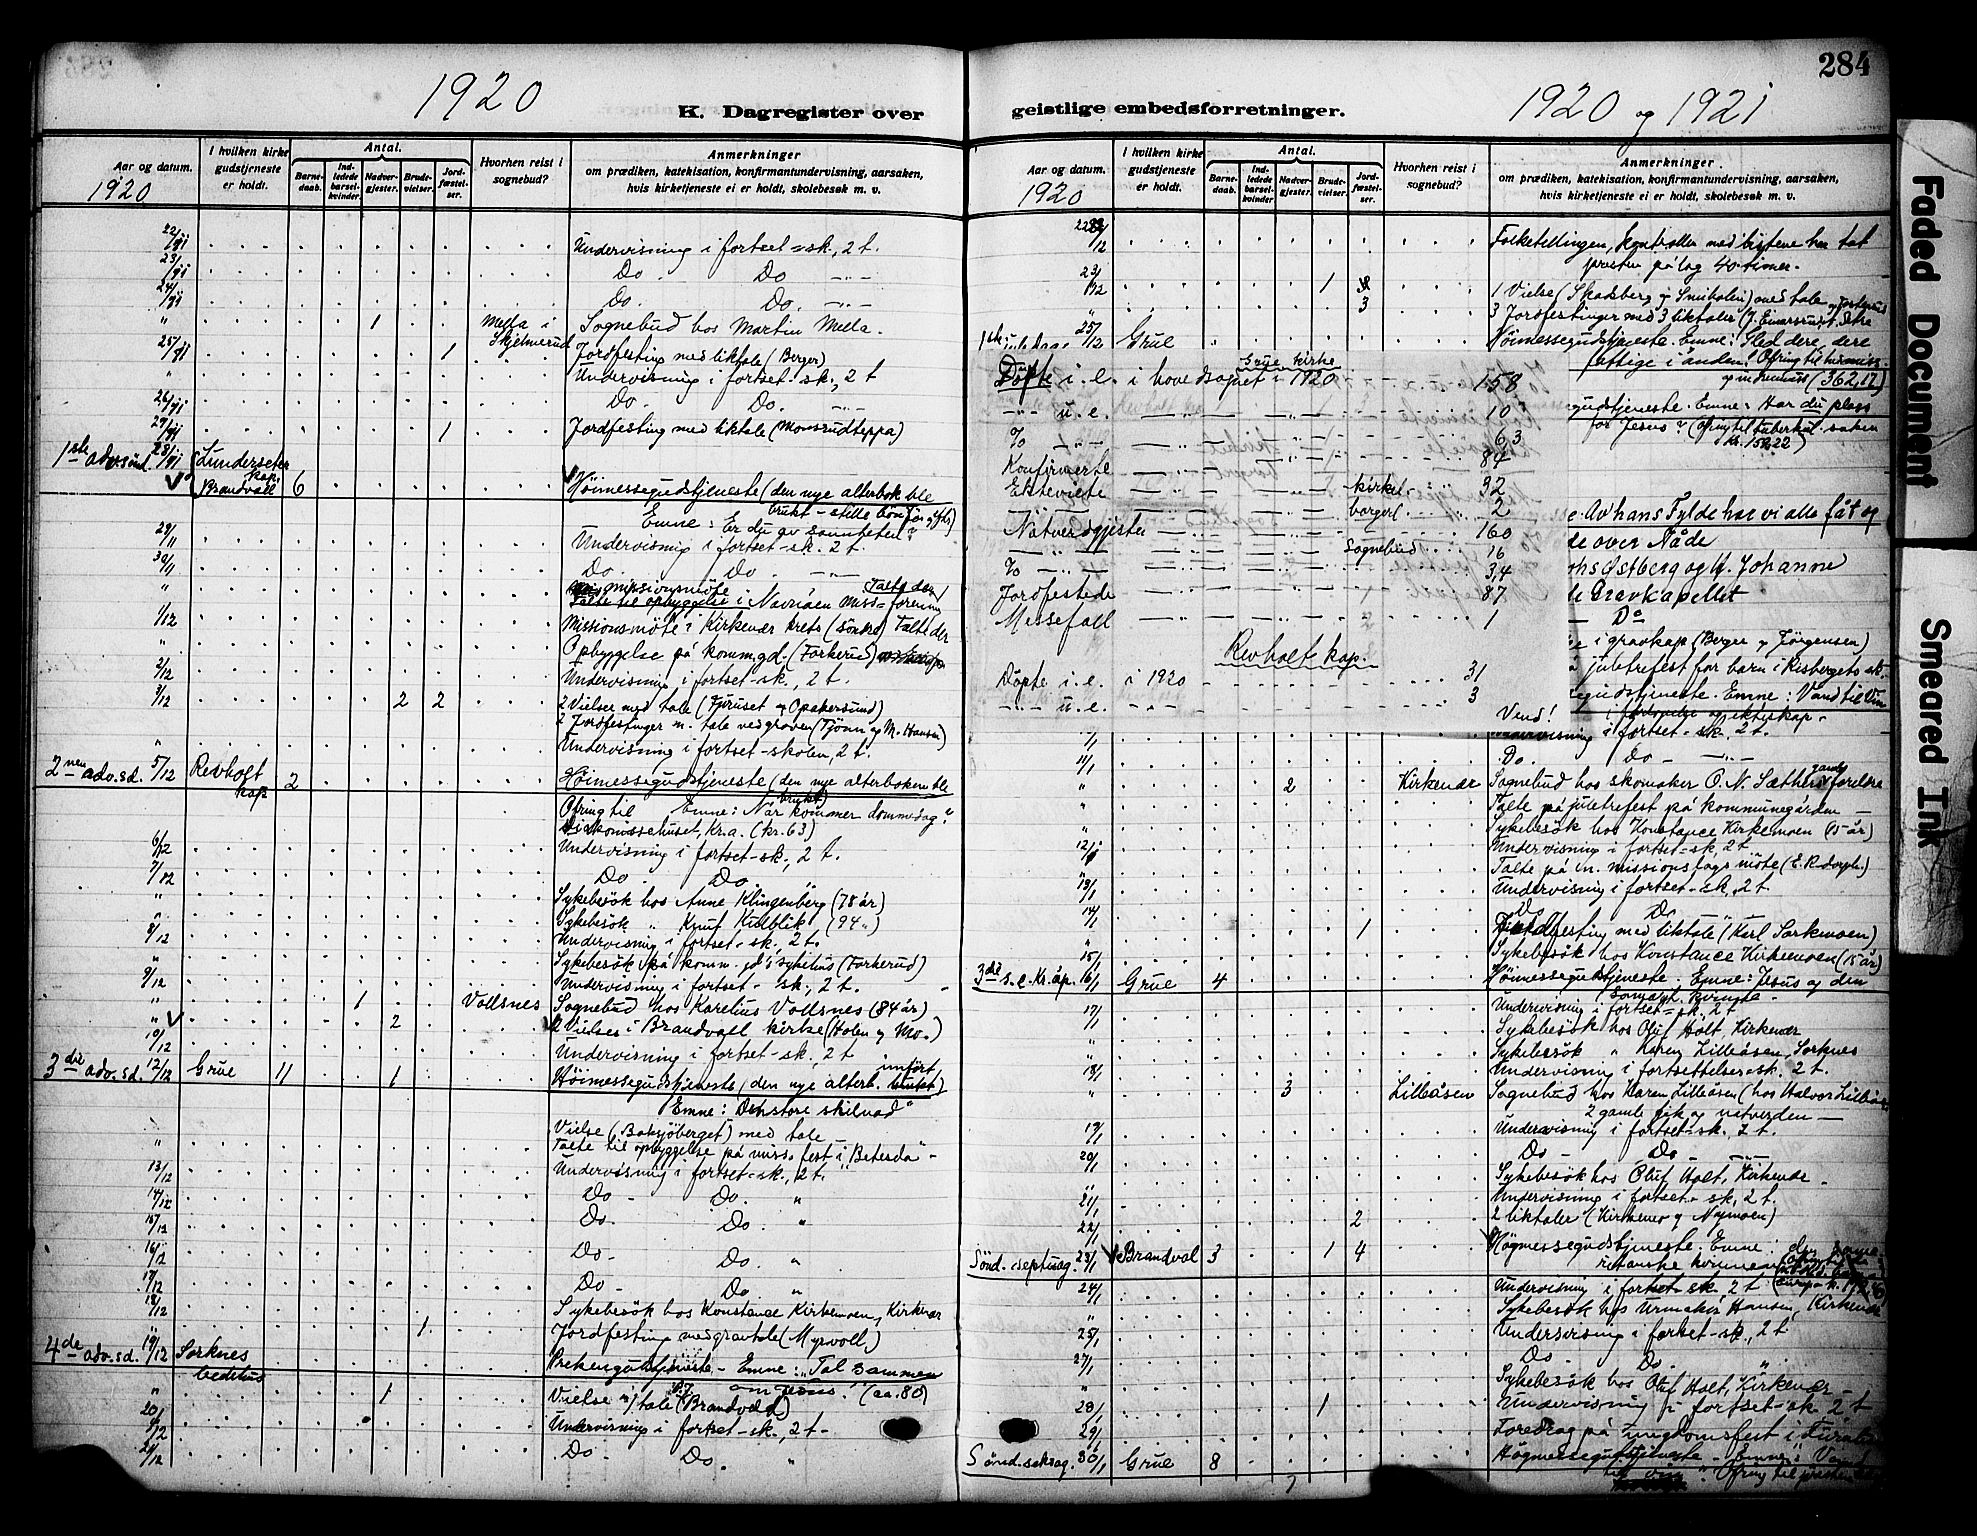 1920
K. Dagregister over
Aar og datum.
1920
I hvilken kirke gudstjeneste er holdt.
Antal.
Barnedaab.
Indledede barselkvinder.
Nadvergjester.
Brudevielser.
Jordfæstelser.
Hvorhen reist i sognebud?
Anmerkninger
om prædiken, katekisation, konfirmantundervisning, aarsaken,
hvis kirketjeneste ei er holdt, skolebesøk m. v.
22/11 Undervisning i fortset=sk., 2 t.
23/11 Do Do
24/11 Do. Do.
" 1 Mella i Skjelmerud Sognebud hos Martin Mella.
25/11 1 Jordfesting med liktale (Berger)
" Undervisning i fortset. sk., 2 t
26/11 Do. Do.
27/11 1 Jordfesting med liktale (Monsrudteppa)
1ste adv.sønd. 28/11 Lunderseter kap.
Brandvall 6 Høimessegudstjeneste (den nye alterbok ble
brukt - stille bøn før og efter)
Emne: Er du av sannheten?
29/11 Undervisning i fortset-sk. 2 t.
30/11 Do. Do.
" Talte til opbyggelse i
1/12 Missionsmöte i Kirkenær krets (söndre) Talte der
" Opbyggelse på komm.gd. (Forkerud)
2/12 Undervisning i fortset-sk., 2 t.
3/12 2 2 2 Vielser med tale (Gjeruset og Opakersund)
2 Jordfestinger m. tale ved graven (Tjönn og M. Hansen)
" Undervisning i fortset-skolen, 2 t.
2nen adv.sd. 5/12 Revholt kap 2 Høimessegudstjeneste (den nye alterboken ble
brukt)
Ofring til Emne: Når kommer dommedag?
Diakonissehuset, Kr.a. (kr. 63)
6/12 Undervisning i fortset-sk., 2 t.
7/12 Do Do.
" Sykebesök hos Anne Klingenberg (78 år)
" Sykebesök " Knut Kidlblik (94 ")
8/12 Undervisning i fortset-sk., 2 t.
" Sykebesök på komm. gd's sykehus (Forkerud)
9/12 Undervisning i fortset-sk., 2 t.
" 1 Vollsnes Sognebud hos Karelius Vollsnes (84 år)
" 2 2 Vielser i Brandvall kirke (Holen og Mo.)
10/12 Undervisning i fortset-sk., 2 t
3die adv.sd. 12/12 Grue 11 1 Høimessegudstjeneste (den nye alterb. innført)
Emne: Den store skilnad"
Vielse (Baksjøberget) med tale
" Talte til opbyggelse på miss. fest i "Betesda"
13/12 Undervisning i fortset-sk., 2 t.
14/12 Do - Do. "
15/12 Do. Do. "
16/12 Do- Do. "
17/12 Do- Do. "
18/12 Sykebesök hos Konstanse Kirkemoen, Kirkenær
" 1 Jordfesting med gravtale (Myrvoll)
4de adv.sd. 19/12 Sorknes bedehus Prekengudstjeneste - Emne: "Tal sammen
om Jesus!" (ca. 80)
" 1 Vielse m/ tale (Brandvold)
20/12 Undervisning i fortset-sk., 2 t-
21/12 Do- Do. "
284
geistlige embedsforretninger.
1920 og 1921
Aar og datum.
1920
I hvilken kirke gudstjeneste er holdt.
Antal.
Barnedaab.
Indledede barselkvinder
Nadvergjester.
Brudevielser.
Jordfæstelser.
Hvorhen reist i sognebud?
Anmerkninger.
om prædiken, katekisation, konfirmantundervisning, aarsaken,
hvis kirketjeneste ei er holdt, skolebesøk m. v.
22/12 Folketellingen, kontrollen med listene har tat
presten på lag 40 timer.
23/12 1 1 Vielse (Skadsberg og Smiholen) med tale
" 3 3 Jordfestinger med 3 liktaler
1ste juledag 25/12 Grue Høimessegudstjeneste. Emne: Gled dere, dere
fattige i ånden! Ofring til
(362,17)
Grue kirke
Döpte i. e. i hovedsognet i 1920 158
-"- u. e. 10
% 6,3
Konfirmerte 84
Ekteviete kirkel. 32
borgerl. 2
Natverdgjester 160
Sognebud 16
% 3,4
Jordfestede 87
Messefall 1
Revholt kap.
Döpte i. e. i 1920 31
-"- u. e. 3
Vend!
gudstjeneste. Emne: Har du plass
for Jesus? (Ofring til tuberkul. saken
kr. 152.22)
Av hans Fylde har vi alle fåt og
de over Nåde
Östberg og M. Johanne
Gravkapellet
Do
i gravkap (Berger og Jörgensen)
juletrefest for barn i Risbergets sk.
gudstjeneste. Emne: Vand til Vin
i fortset-sk., 2 t.
11/1 Do. Do -
" 2 Kirkenær Sognebud hos skomaker O. N. Sæthers gamle foreldre
" Talte på juletrefest på kommunegården -
" Sykebesök hos Konstance Kirkemoen (15 år)
12/1 Undervisning i fortset-sk., 2 t
" Talte på in. missionslags möte
13/1 Undervisning i fortset-sk., 2 t.
14/1 Do Do
" 1 Jordfesting med liktale (Karl Sorkmoen)
15/1 Sykebesök hos Konstance Kirkemoen (15 år)
3die s.e. Kr.åp. 16/1 Grue 4 Høimessegudstjeneste. Emne: Jesus og den
kvinne -
17/1 Undervisning i fortset-sk. 2 t
" Sykebesök hos Oluf Holt, Kirkenær
" Sykebesök " Karen Lilleåsen, Sorknes
18/1 Undervisning i fortsettelses-sk. 2 t.
" 3 Lilleåsen Sognebud hos Karen Lilleåsen (hos Halvor Lilleåsen
2 gamle fik og natverden -
19/1 Undervisning i fortset-sk., 2 t.
20/1 Do - Do -
" Sykebesök hos Oluf Holt, Kirkenær
21/1 Undervisning i fortset-sk., 2 t.
22/1 2 2 liktaler (Kirkemo og Nymoen)
Sönd. septuag. 23/1 Brandval 3 1 4 Høgmessegudstjeneste. Emne:
24/1 Undervisning i fortset-sk. 2 t
" Sykebesök hos Urmaker Hansen, Kirkenær
25/1 Undersvisning i fortset-sk., 2 t
27/1 Do Do. "
" Sykebesök hos Oluf Holt, Kirkenær -
28/1 1 Undervisning i fortset-sk. 2 t
29/1 Foredrag på ungdomsfest i
Sönd. seksag. 30/1 Grue 8 7 Høgmessegudstjeneste - Emne:
Ofring til
Faded Document
Smeared Ink